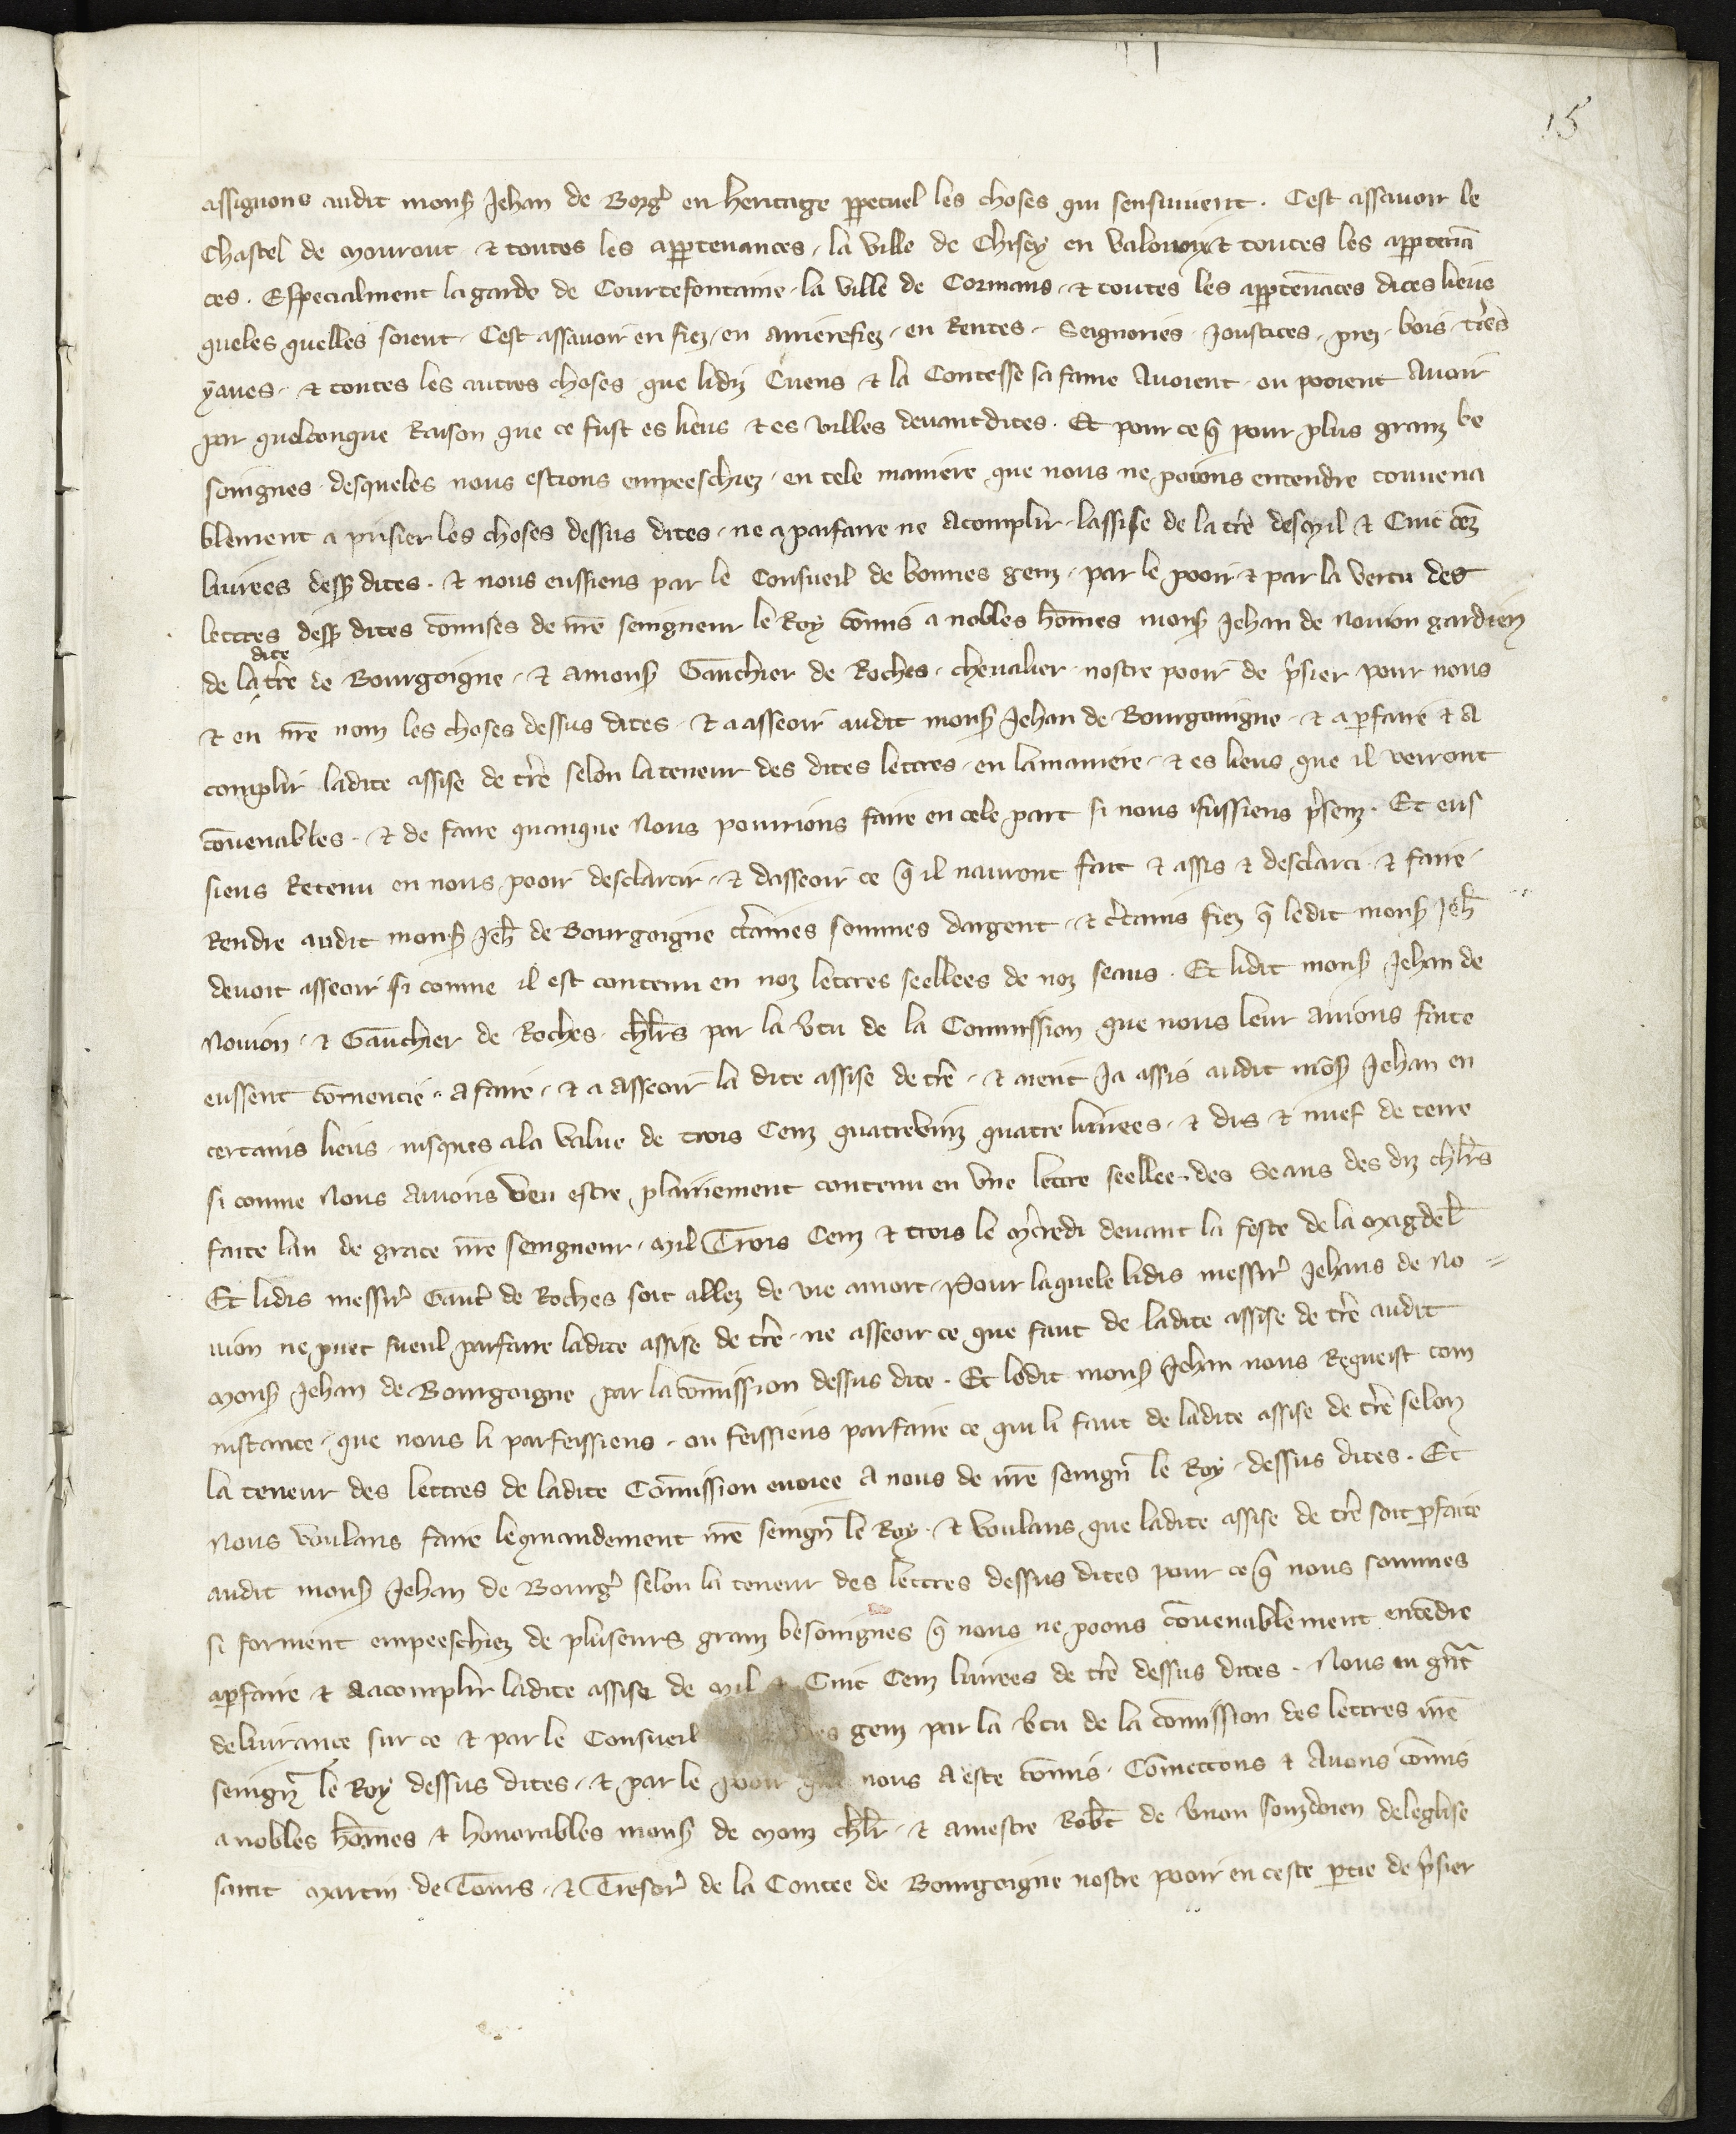 15
assignons audit mons Jehan de Borg en heritage ppetuel les choses qui sensuiuent . Cest assauoir le
Chastel de Mouront & toutes les appartenances . la ville de Chisey en Valouoix & toutes les appartenā
ces . Espetialment lagarde de Courtefontainne . la ville de Cormans . & toutes les appartenāces dices lieus
queles quelles soient . Cest assauoir en fiez . en arrierefiez . en Rentes . Seignories . joustices . prez . bois . tres
yaues . & toutes les autres choses que lidiz Cuens & la Contesse sa fame Auoient . ou pooient Auoir
par quelconque Raison que ce fust es lieus & es villes deuantdites . Et pour ce q pour plus granz be
soingnes . desqueles nous estions empeeschiez . en tele maniere que nous ne poions entendre conuena
blement a prisier les choses dessus dites . ne a parfaire ne Acomplir . lassise de la tre des Mil & Cinc cēz
liurees dess dites . & nous eussiens par le Consueil de bonnes genz . par le pooir & par la vertu des
lettres dess dites cōmises de nre seingneur le Roy cōmis a nobles hōmes mons Jehan de Nouion gardien
de la dite tre de Bourgoigne . & a mons Gauchier de Roches . cheualier . nostre pooir de prisier pour nous
& en nre nom les choses dessus dites . & a asseoir audit mons Jehan de Bourgoingne . & a pfaire & A
complir ladite assise de tre selon la teneur des dites lettres . en lamaniere . & es lieus que il verront
cōuenables . & de faire quanque Nous pourrions faire en cele part si nous i fussiens psenz . Et eus
siens Retenu en nous pooir desclarcir . & dasseoir ce q il nauront fait & assis & desclarci . & faire .
Rendre audit mons Jeh de Bourgoigne ctaines sommes dargent . & ctains fiez q ledit mons Jeh
deuoit asseoir si comme il est contenu en noz lettres seellees de noz seaus . Et lidit mons Jehan de
Nouion . & Gauchier de Roches . chlrs par la vtu de la Commission que nous leur auions faite
eussent cōmencie . a faire . & a asseoir la dite assise de tre . & aient Ja assis audit mōs Jehan en
certains lieus . iusques a la value de trois Cenz quatrevinz quatre liurees . & dis & nuef de terre
si comme Nous Auons veu estre plainiement contenu en vne lettre seellee . des Seaus des diz chlrs
faite lan de grace nre seingneur . Mil Trois Cenz & trois le mcredi deuant la feste de la Magdel
Et lidis messir Gauc de Roches soit allez de vie a mort . Pour laquele lidis messir Jehans de No=
uion ne puet sueul parfaire ladite assise de tre . ne asseoir ce que faut de ladite assise de tre audit
Mons Jehan de Bourgoigne par la cōmission dessus dite . Et lodit mons Jehan nous Requeist com
instance . que nous li parfeissiens . ou feissiens parfaire ce qui li faut de ladite assise de tre selon
la teneur des lettres de ladite Cōmission enuoiee A nous de nre seingn le Roy . dessus dites . Et
Nous voulans faire le qmandement nre seingn le Roy . & voulans que ladite assise de tre soit pfaite
audit mons Jehan de Bourg selon la teneur des lettres dessus dites pour ce q nous sommes
si forment empeeschiez de pluseurs granz besoingnes q nous ne poons cōuenablement entēdre
apfaire & A acomplir ladite assise de Mil & Cinc Cenz liurees de tre dessus dites . Nous en gnt
deliurance sur ce & par le Consueil genz par la vtu de la cōmission des lettres nre
seingn le Roy dessus dites . & par le pooir que nous A este cōmis . Cōmettons & Auons cōmis
a nobles hōmes & honorables mons de Monz chlr . & a mestre Robt de Vnon souzdoien deleglise
saint Martin de Tours . & Tresor de la Contee de Bourgoigne nostre pooir en ceste ptie de psier